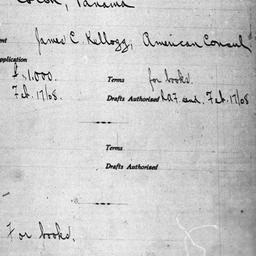 Colon, Panama
ent James C. Kellogg, American Consul
pplication
£ 1,000. Terms for books.
Feb. 17/05 Drafts Authorised end. Feb. 17/05
Terms
Drafts Authorised
For books.